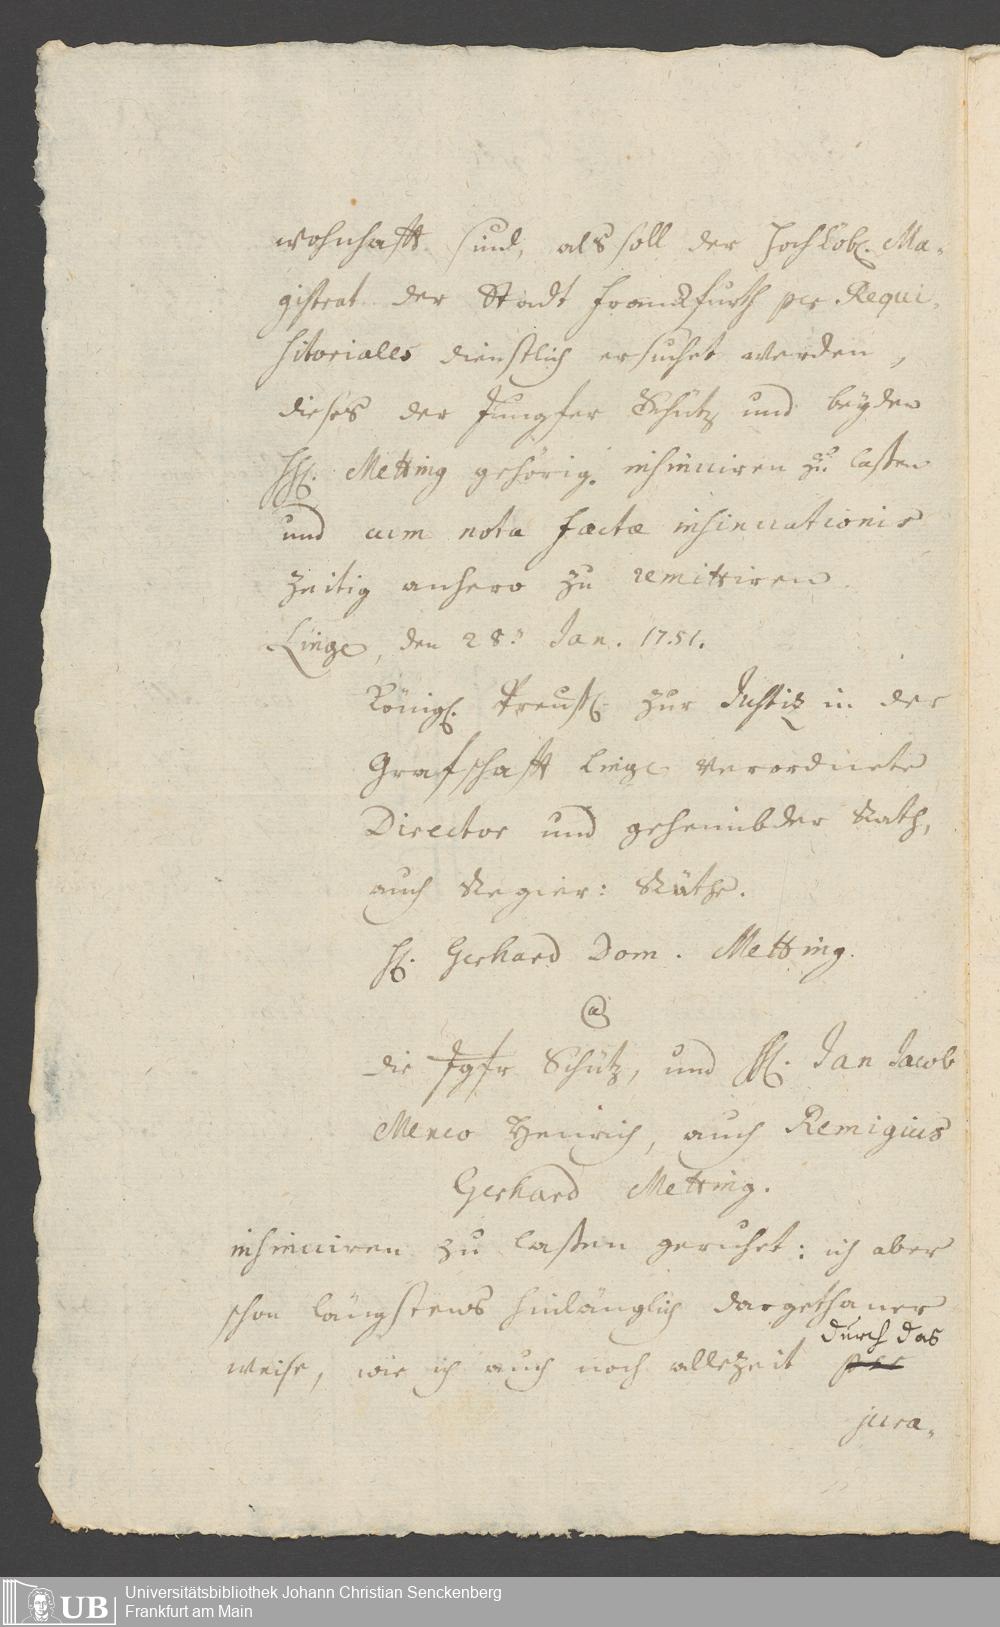 wohnhafft sind, als soll der Hochlöbl. Ma-
gistrat der Stadt Franckfurth per Requi-
sitoriales dienstlich ersuchet werden,
dieses der Jungfer Schütz und beyden
HH. Metting gehörig insinuiren zu laßen
und cum nota factæ insinuationis
zeitig anhero zu remittiren.
Linge, den 28. Jan. 1751.
Königl. Preußl. zur Justiz in der
Grafschafft Linge verordnete
Director und geheimbder Rath,
auch Regier: Räthe.
H. Gerhard Dom. Metting.
a
die Jgfr Schütz, und HH. Jan Jacob
Menco Henrich, auch Remigius
Gerhard Metting.
insinuiren zu laßen geruhet: ich aber
schon längstens hinlänglich dargethaner
durch das
weise, wie ich auch noch allezeit per
jura-
UB Universitätsbibliothek Johann Christian Senckenberg
Frankfurt am Main